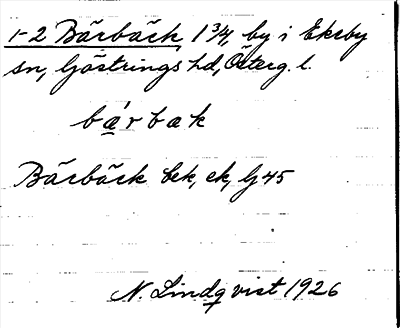 1-2 Bärbäck, 1 3/4, by i Ekeby
sn, Göstrings hd, Österg. l.
bá̤rbak
Bärbäck bek, ek, G 45
N. Lindqvist 1926